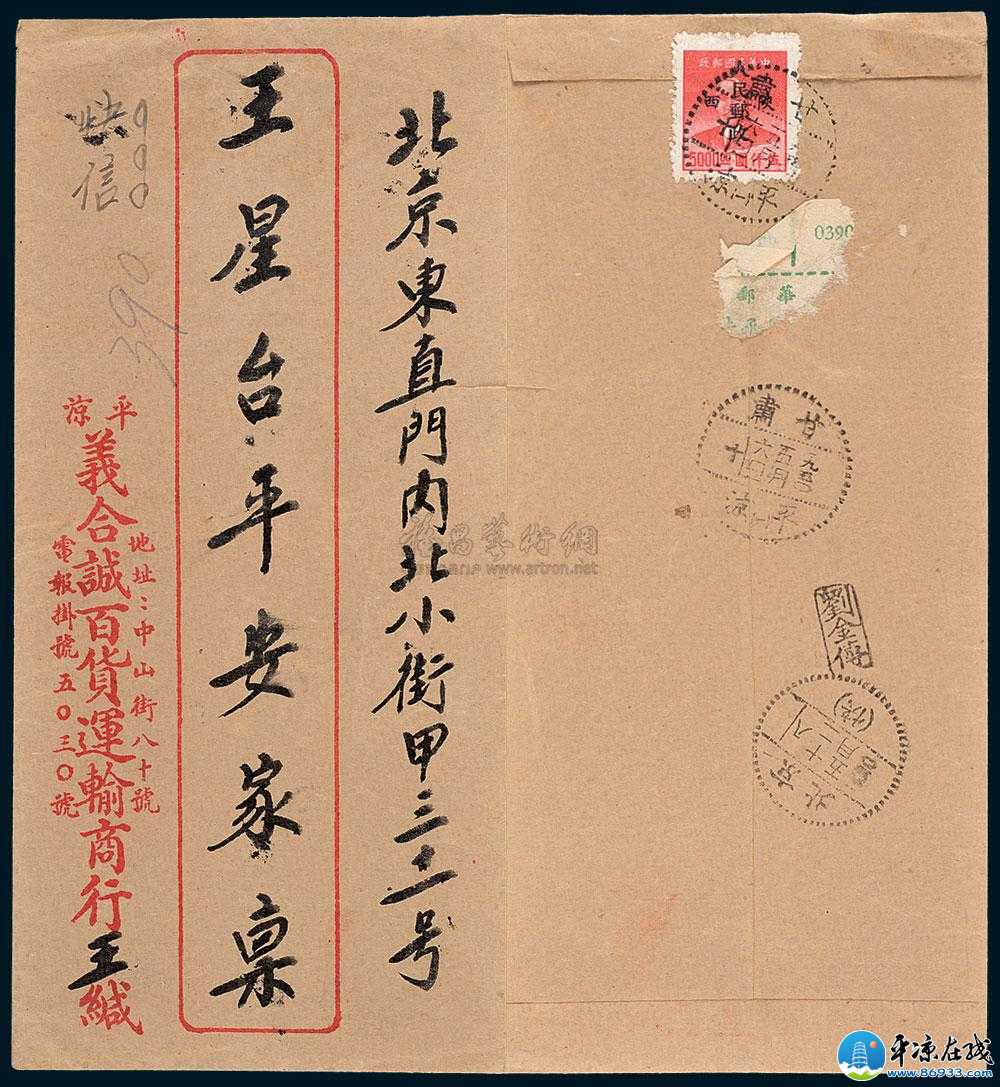 北京東直門内北小街甲三十二号
王星台平安家稟
平凉
義合誠百貨運輸商行王緘
地址：中山街八十號
電報掛號五〇三〇號
快信
390
中華民國郵政
人民郵政
5000
0390
華郵
甘肅
平凉
甘肅
平凉
劉金傳
北京
www.artron.net
平凉在线
www.86933.com